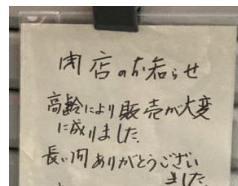 閉店のお知らせ
高齢により販売が大変
に成りました。
長い間ありがとうござい
ました。